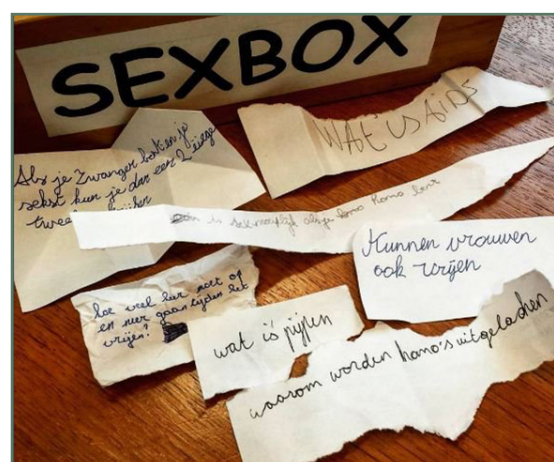 SEXBOX
WAt is AiDs
Als je zwanger bent en je
sekst kun je dan een 2 eiige
twee
is seks moeilijk als je homo bent
Kunnen vrouwen
ook vrijen
hoe veel keer moet op
en neer gaan tijden het
vrijen?
wat is pijpen
waarom worden homo's uitgelachen